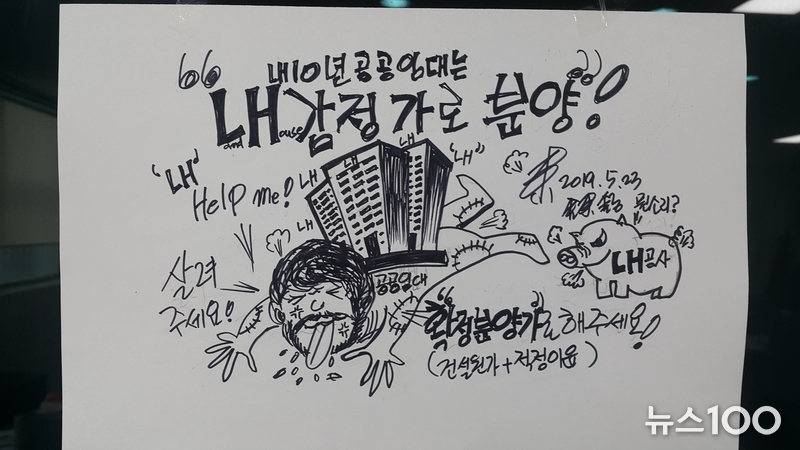 “내10년공공임대는
LH감정가로 분양!”
and House
내 내 내 내
‘내’ ‘내’
Help me!
2019.5.23
뭔소리?
살려
주세요!
LH공사
공공임대
“확정분양가”로 해주세요!
(건설원가+적정이윤)
뉴스100